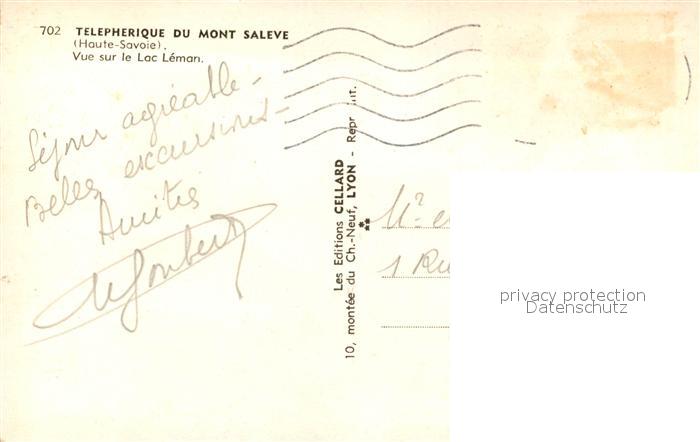 702 TELEPHERIQUE DU MONT SALEVE
(Haute-Savoie).
Vue sur le Lac Léman.
Séjour agréable -
Belles excursions -
Amitiés
Les Editions CELLARD
10, montée du Ch.-Neuf, LYON - Repr. int.
1 Ru
privacy protection
Datenschutz